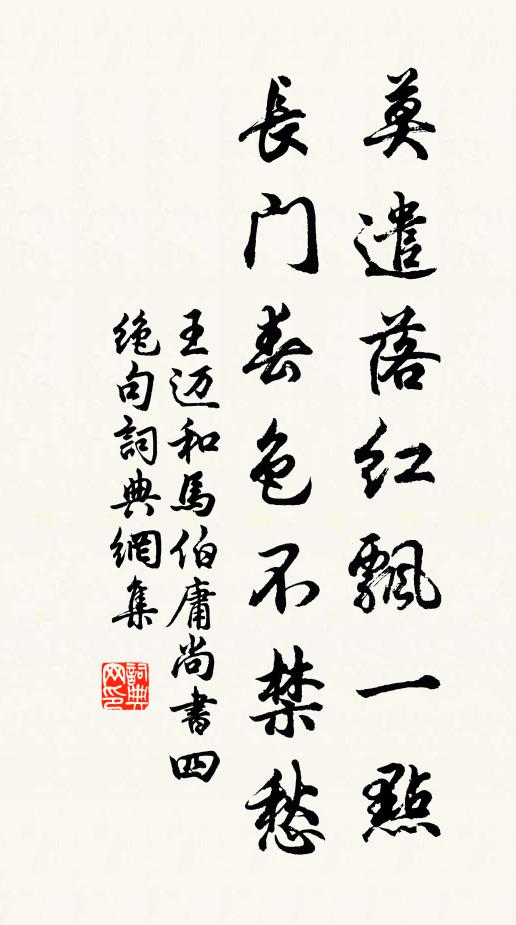 莫遣落红飄一點
長門春色不禁愁
王迈和馬伯庸尚書四
绝句詞典網集
詞典网印